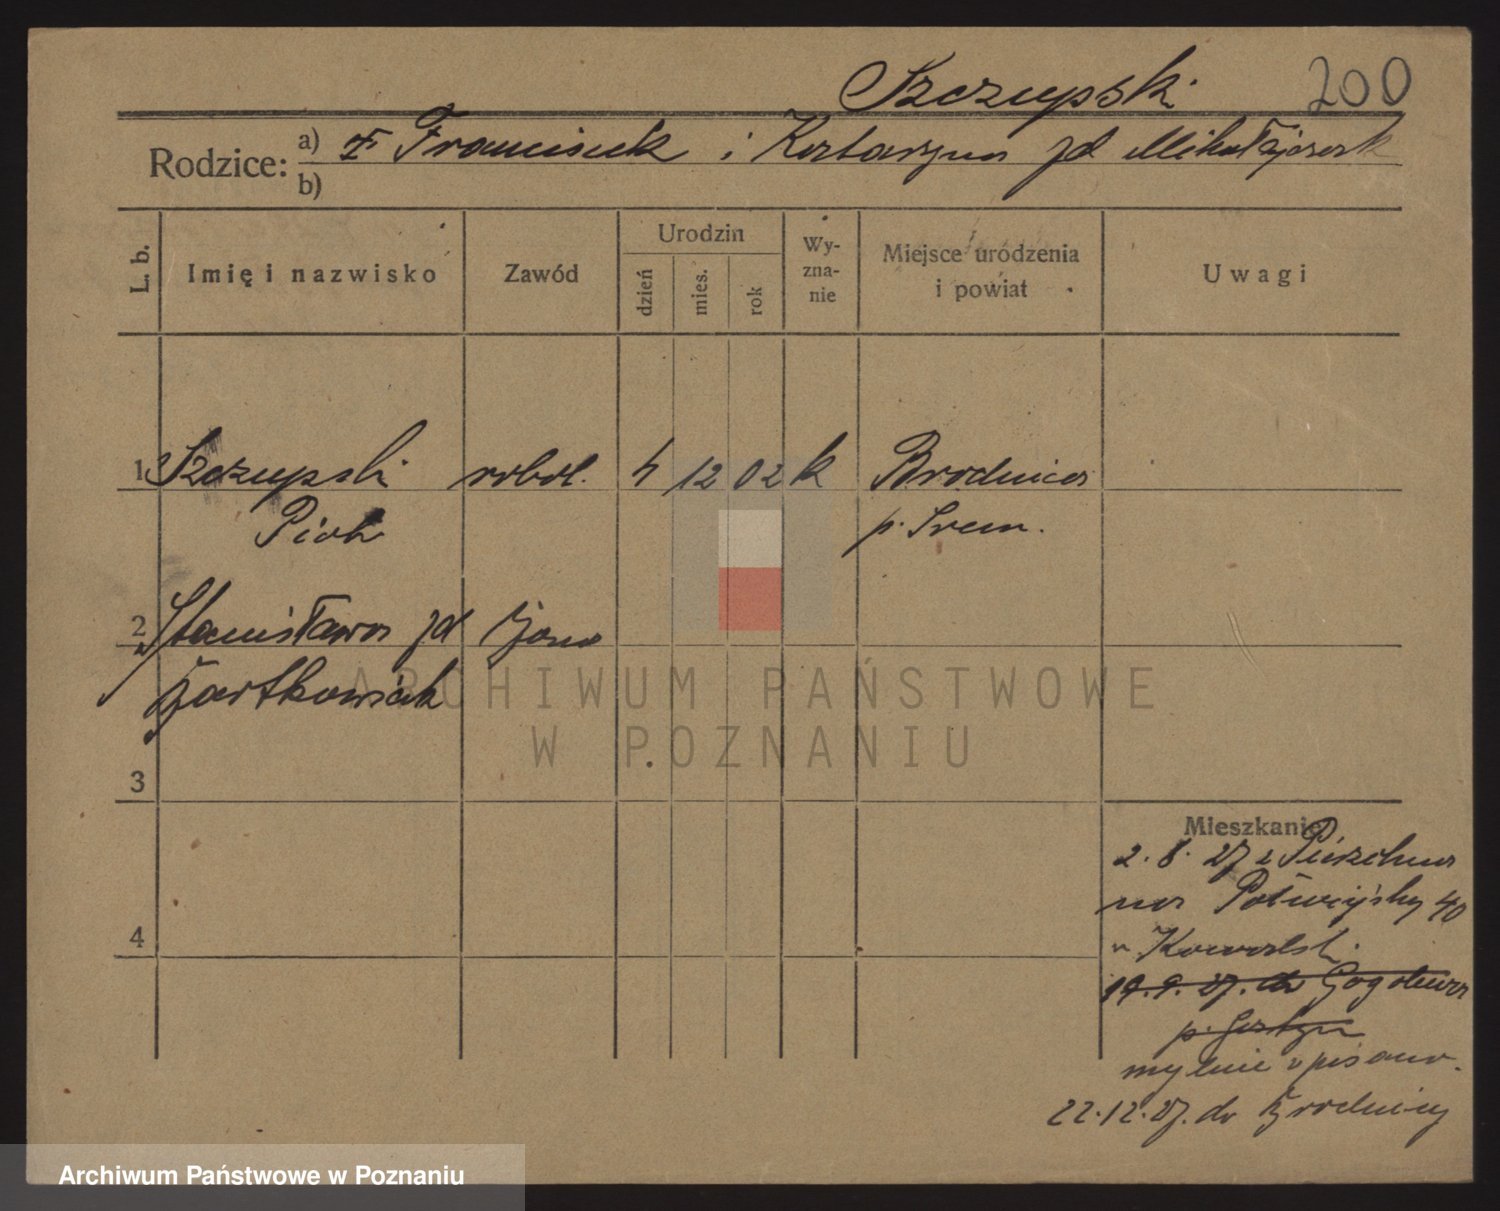 Szczupski 200
Rodzice: a) Franciszek i Katarzyna zd Mikołajczak
b)
L. b. Imię i nazwisko Zawód Urodzin dzień mies. rok Wyznanie Miejsce urodzenia i powiat Uwagi
1 Szczupski robot. 4 12 02 k Brodnica
Piotr p. Śrem.
2 Stanisława zd żona
Bartkowiak
3
Mieszkanie
2. 8. 27 z Pierzchna
na Półwiejską 40
u Kowalsk.
19. 9. 27. do Gogolewa
p. Gostyń
mylnie wpisano.
22.12.27. do Brodnicy
4
ARCHIWUM PAŃSTWOWE
W POZNANIU
Archiwum Państwowe w Poznaniu